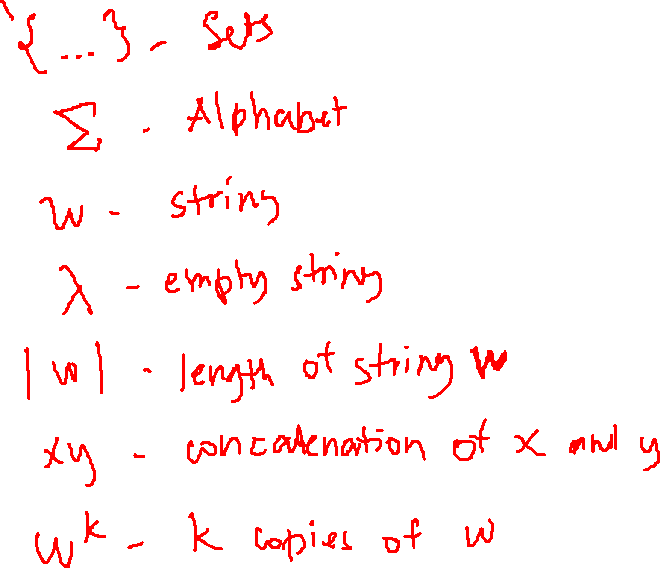 {...} - Sets
Σ - Alphabet
w - string
λ - empty string
|w| - length of string w
xy - concatenation of x and y
w^k - k copies of w